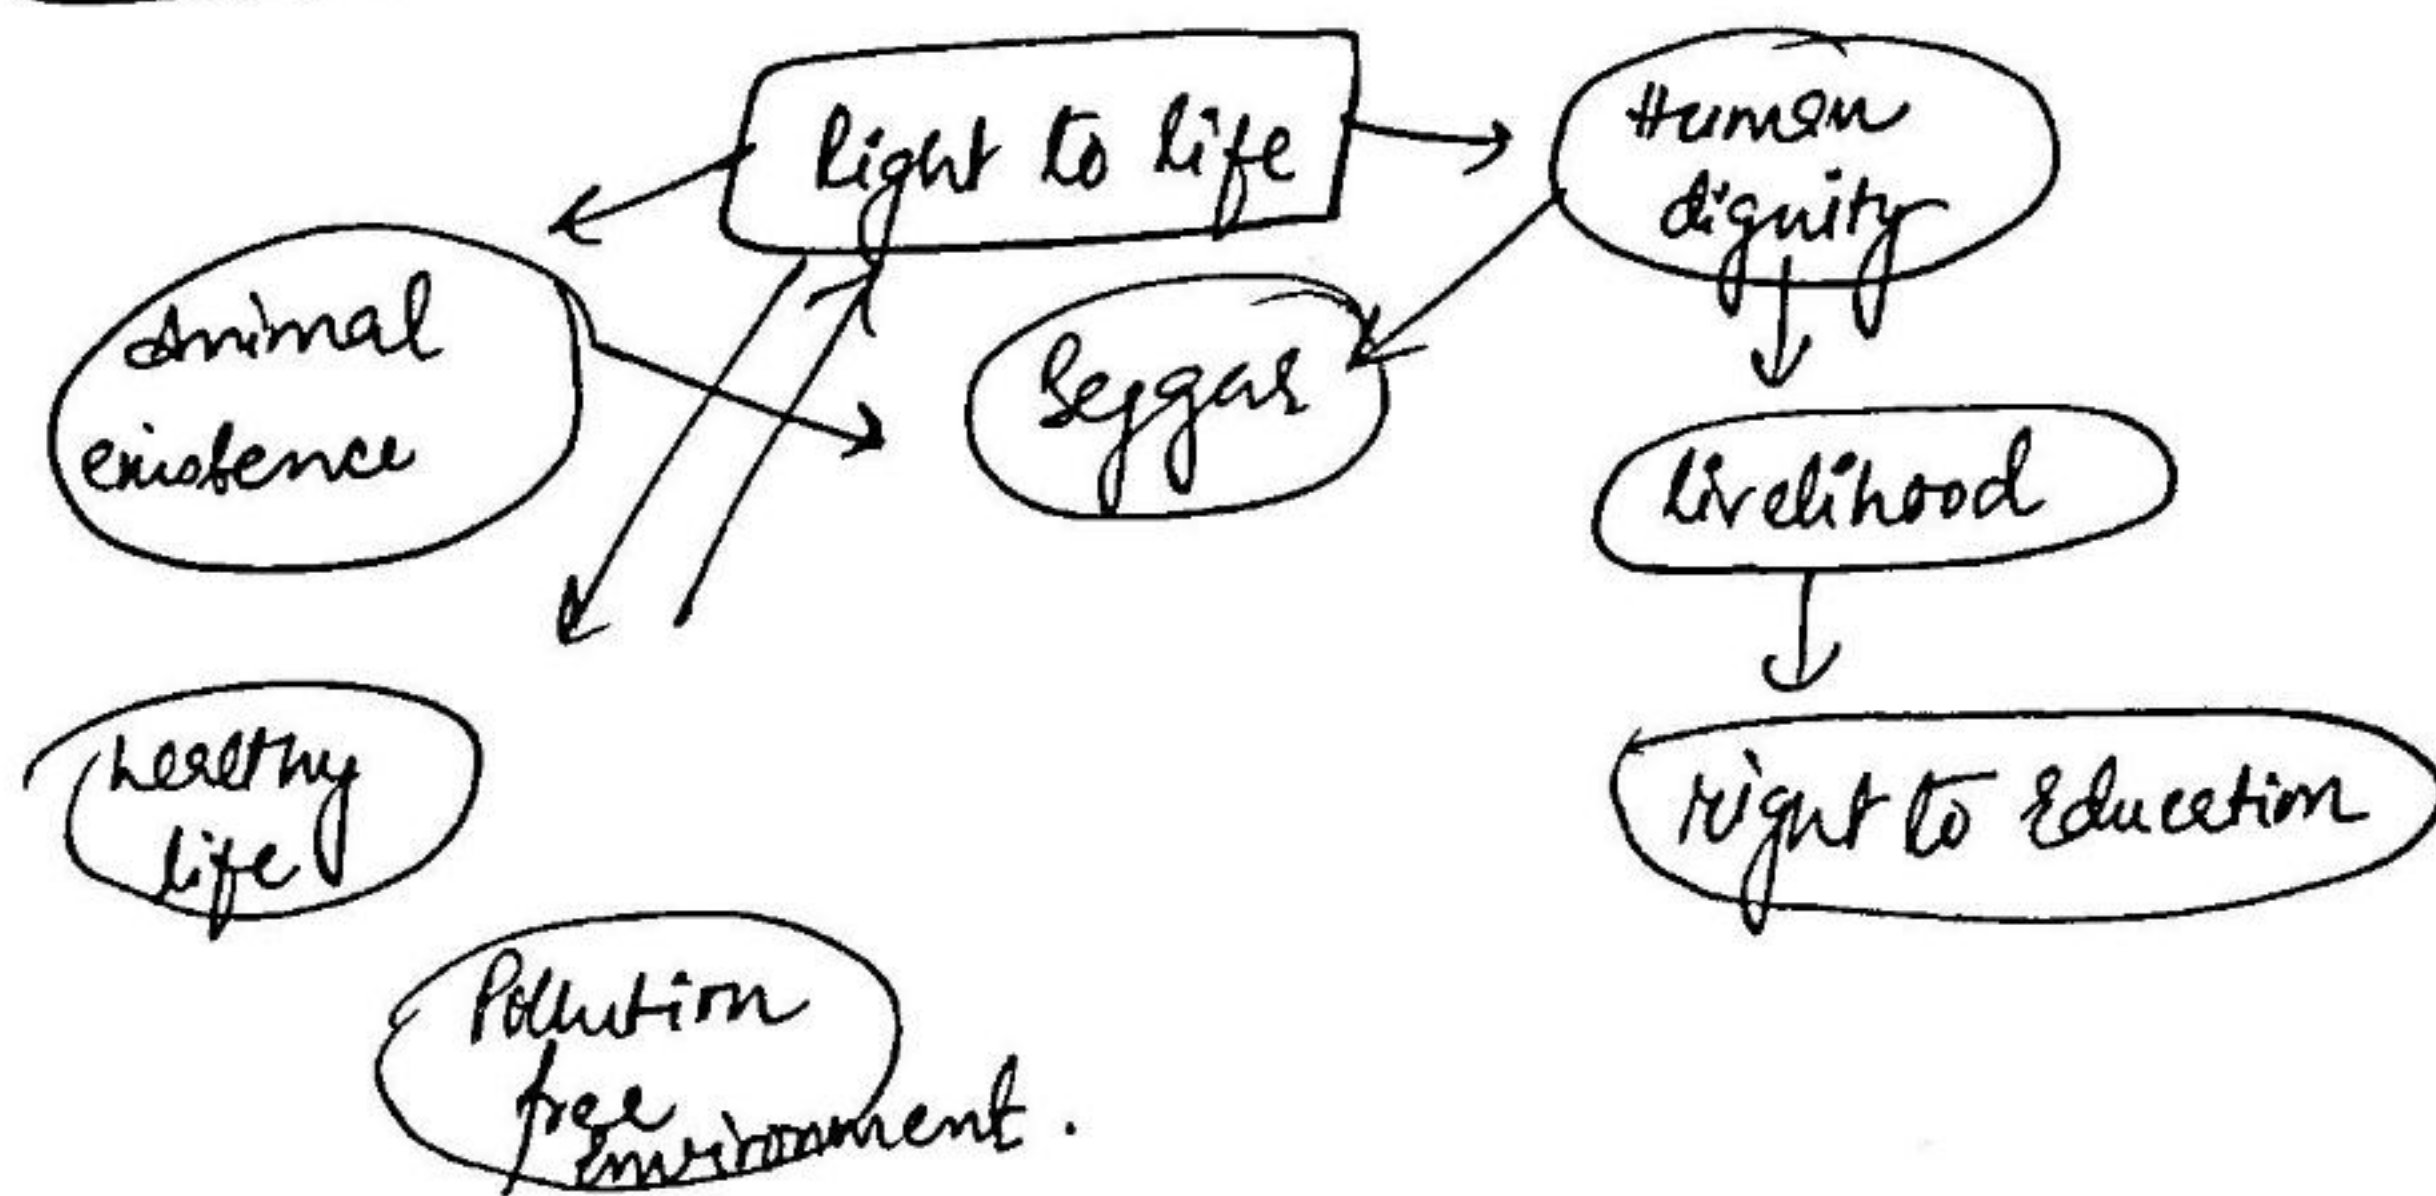 Right to life
Human
dignity
Animal
existence
Beggar
livelihood
healthy
life
right to Education
Pollution
free
environment.